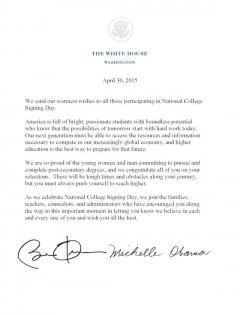 THE WHITE HOUSE
WASHINGTON
April 30, 2015
We send our warmest wishes to all those participating in National College
Signing Day.
America is full of bright, passionate students with boundless potential
who know that the possibilities of tomorrow start with hard work today.
Our next generation must be able to access the resources and information
necessary to compete in our increasingly global economy, and higher
education is the best way to prepare for that future.
We are so proud of the young women and men committing to pursue and
complete post-secondary degrees, and we congratulate all of you on your
selections. There will be tough times and obstacles along your journey,
but you must always push yourself to reach higher.
As we celebrate National College Signing Day, we join the families,
teachers, counselors, and administrators who have encouraged you along
the way to this important moment in letting you know we believe in each
and every one of you and wish you all the best.
Michelle Obama